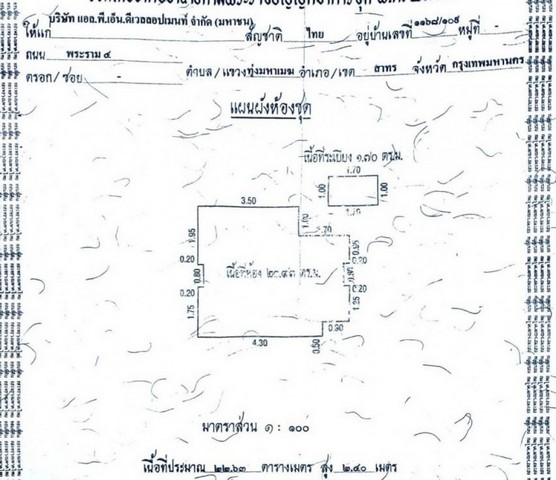 บริษัท แอล.พี.เอ็น.ดีเวลลอปเมนท์ จำกัด (มหาชน)
ให้แก่ สัญชาติ ไทย อยู่บ้านเลขที่ ๑๑๖๘/๑๐๙ หมู่ที่ -
ถนน พระราม ๔
ตรอก/ซอย - ตำบล/แขวง ทุ่งมหาเมฆ อำเภอ/เขต สาทร จังหวัด กรุงเทพมหานคร
แผนผังห้องชุด
เนื้อที่ระเบียง ๑.๗๐ ตร.ม.
1.70
1.00 1.00
1.70
3.50
1.00
.70
1.95 0.95
0.20 0.20
0.80 เนื้อที่ห้อง ๒๐.๙๓ ตร.ม.
0.20 0.20
1.75 1.25
0.90
4.30 0.50
มาตราส่วน ๑ : ๑๐๐
เนื้อที่ประมาณ ๒๒.๖๓ ตารางเมตร สูง ๒.๔๐ เมตร